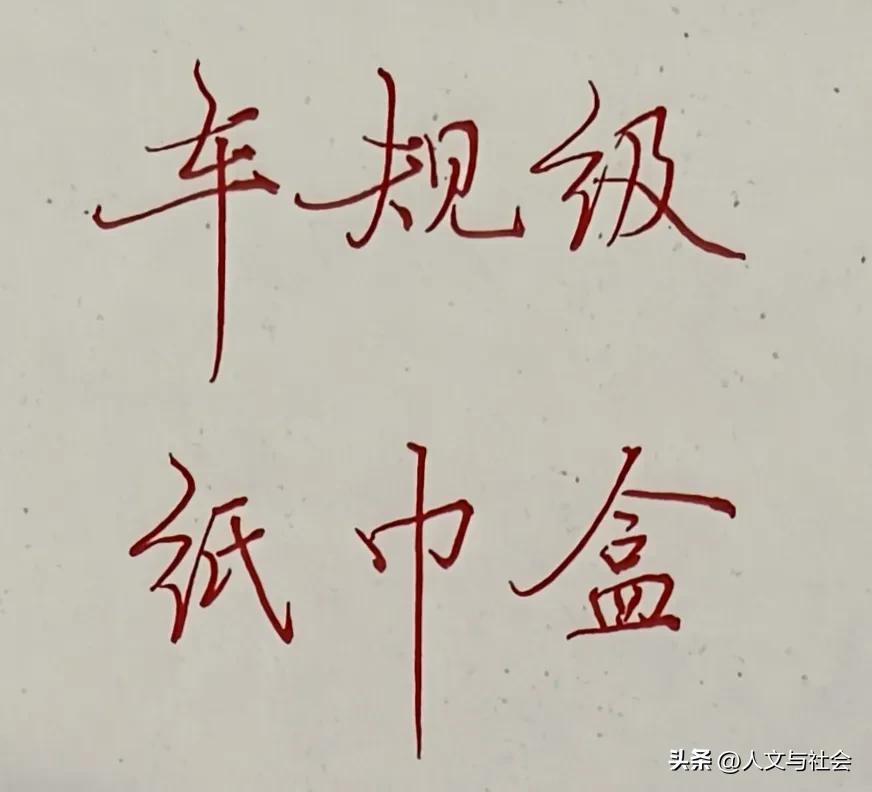 车规级
纸巾盒
头条 @人文与社会